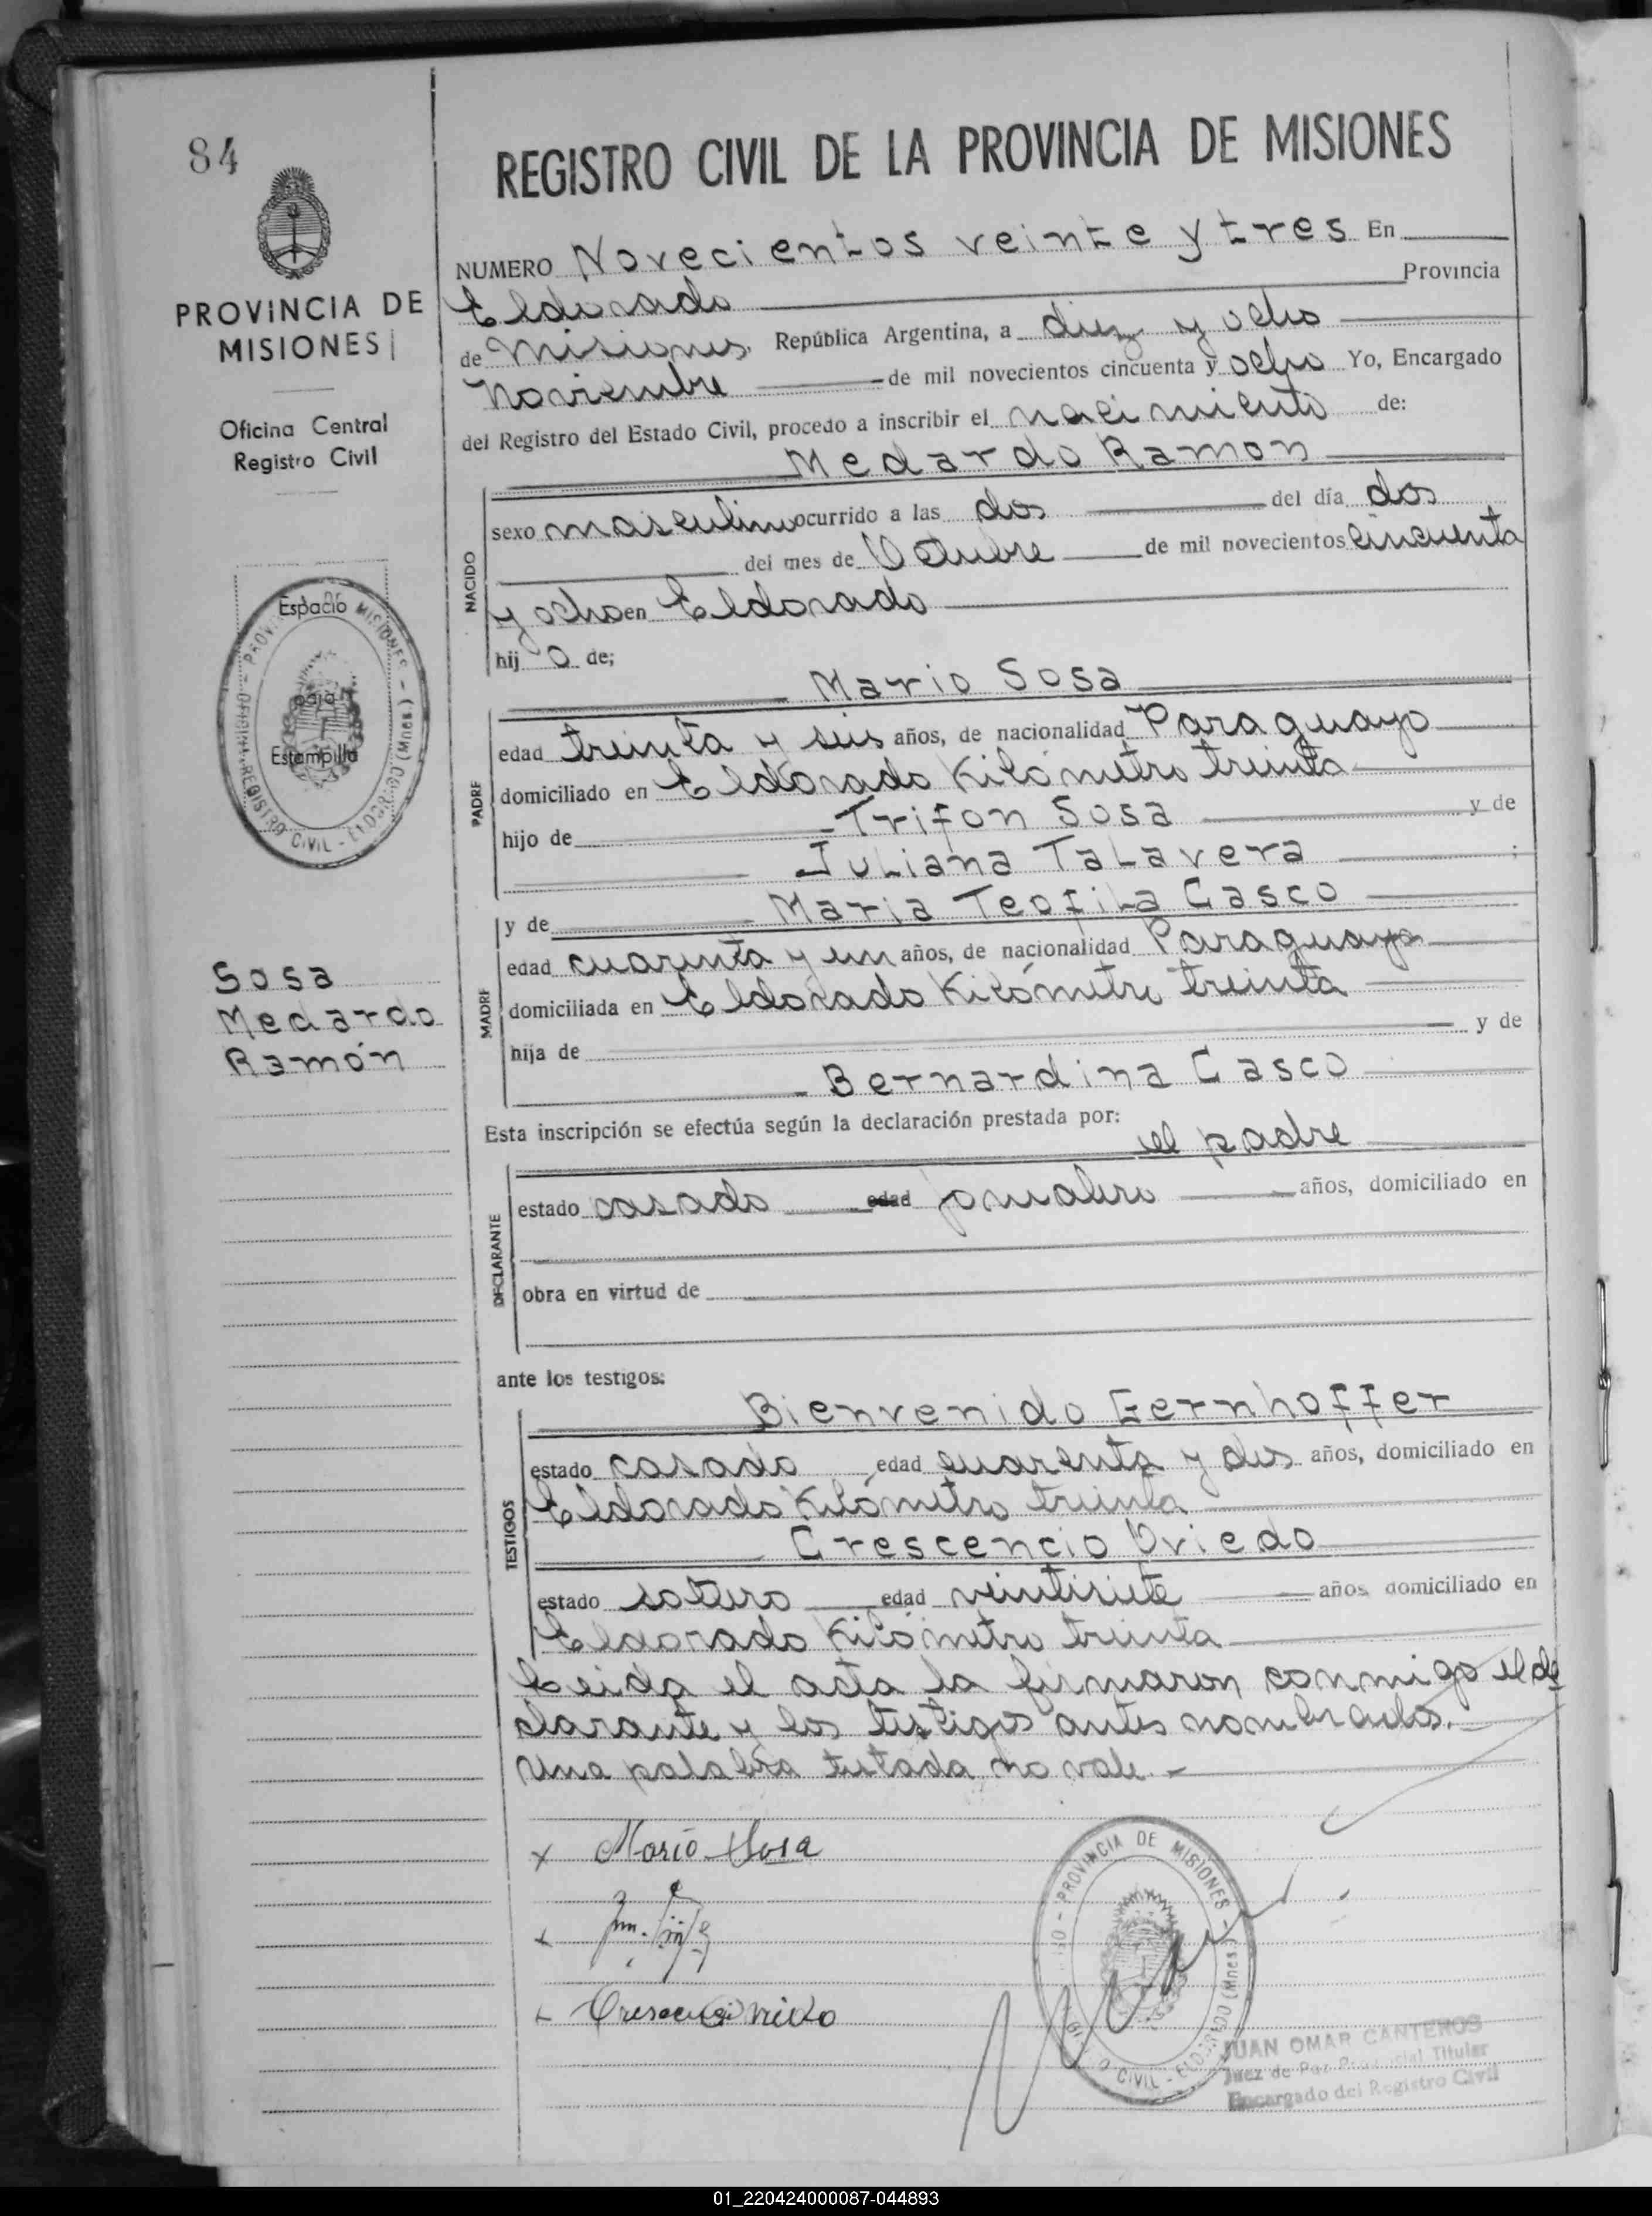 84
REGISTRO CIVIL DE LA PROVINCIA DE MISIONES
PROVINCIA DE
MISIONES
Oficina Central
Registro Civil
NUMERO Novecientos veinte y tres En
Eldorado Provincia
de Misiones, República Argentina, a diez y ocho
Noviembre de mil novecientos cincuenta y ocho Yo, Encargado
del Registro del Estado Civil, procedo a inscribir el nacimiento de:
Medardo Ramon
NACIDO
sexo masculino ocurrido a las dos del día dos
del mes de Octubre de mil novecientos cincuenta
y ocho en Eldorado
hij o de;
Espacio
para
Estampilla
PROVINCIA DE MISIONES - REGISTRO CIVIL - ELDORADO (Mnes.)
Mario Sosa
PADRE
edad treinta y seis años, de nacionalidad Paraguayo
domiciliado en Eldorado Kilómetro treinta
hijo de Trifon Sosa y de
Juliana Talavera ;
y de Maria Teofila Casco
MADRE
edad cuarenta y un años, de nacionalidad Paraguaya
domiciliada en Eldorado Kilómetro treinta
hija de y de
Bernardina Casco
Sosa
Medardo
Ramón
Esta inscripción se efectúa según la declaración prestada por:
el padre
DECLARANTE
estado casado edad jornalero años, domiciliado en
obra en virtud de
ante los testigos:
Bienvenido Gernhoffer
TESTIGOS
estado casado edad cuarenta y dos años, domiciliado en
Eldorado Kilómetro treinta
Crescencio Oviedo
estado soltero edad veintisiete años domiciliado en
Eldorado Kilómetro treinta
Leida el acta la firmaron conmigo el de
clarante y los testigos antes nombrados.
Una palabra tutada no vale.-
x Mario Sosa
x
x
PROVINCIA DE MISIONES - CIVIL - ELDORADO (Mnes.)
JUAN OMAR CANTEROS
Juez de Paz Provincial Titular
Encargado del Registro Civil
01_220424000087-044893